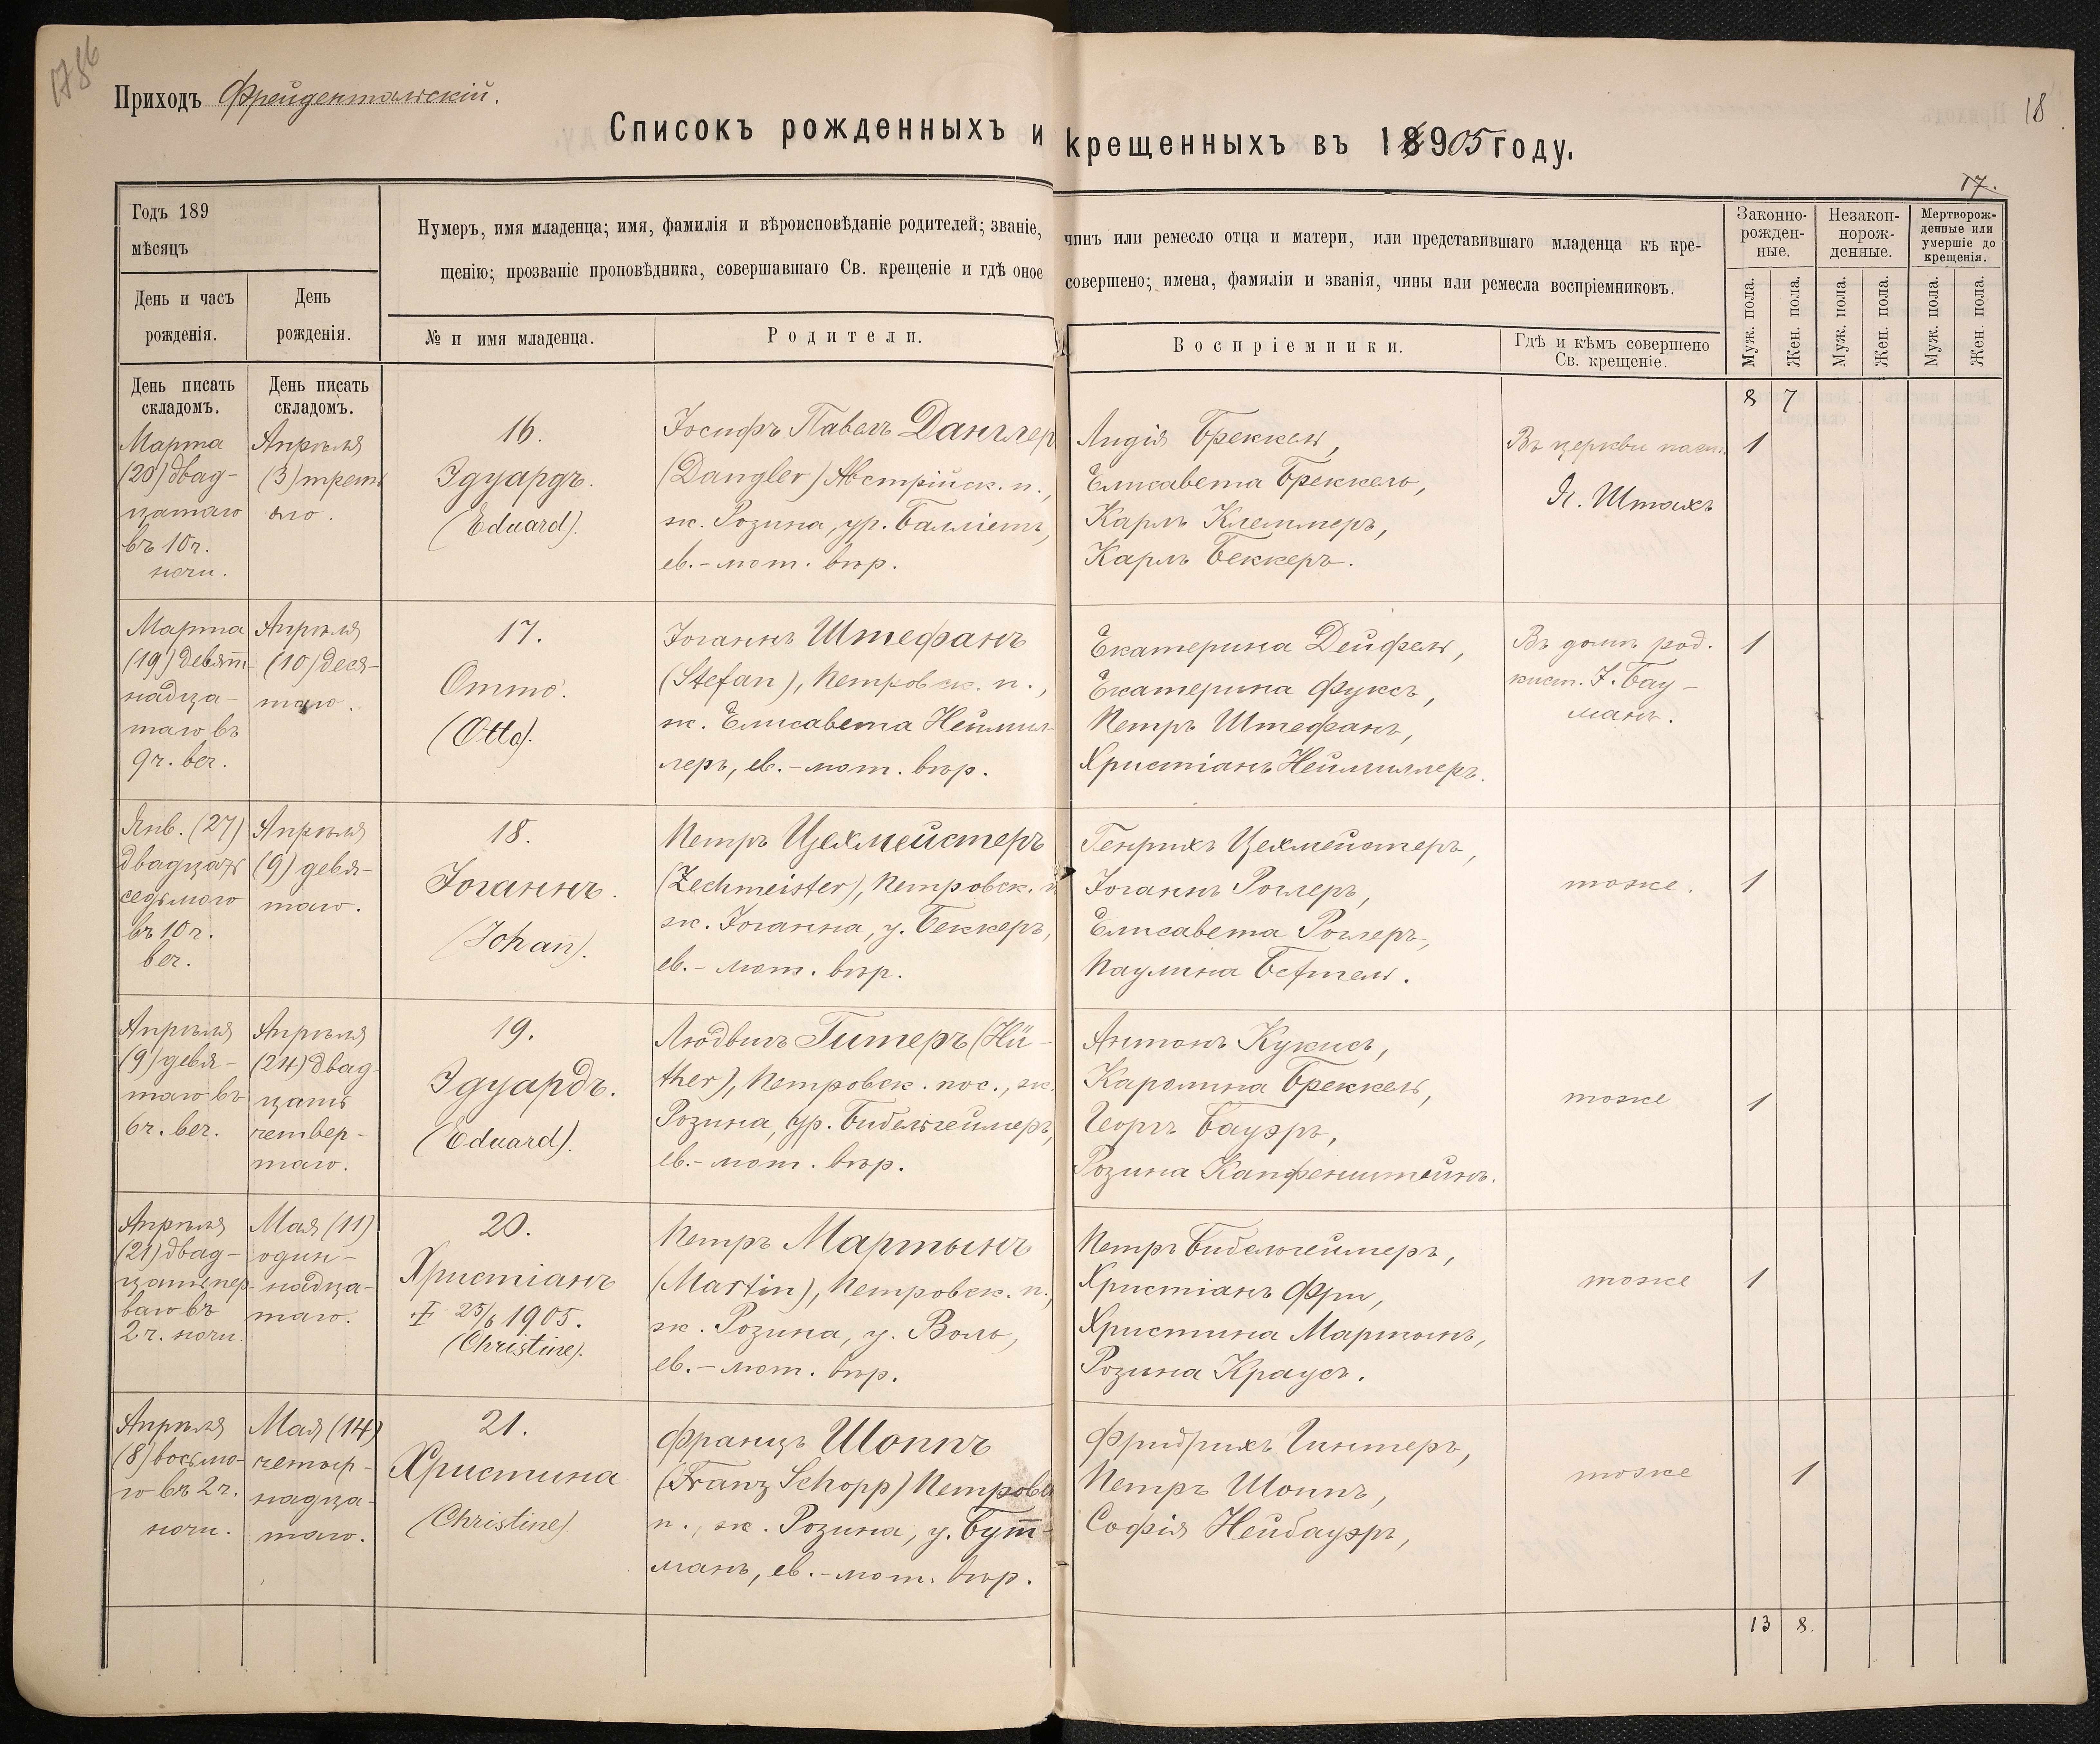 1786
Приходъ Фрейдентальскій.
18
Списокъ рожденныхъ и крещенныхъ въ 18905 году.
17.
Годъ 189
мѣсяцъ
День и часъ
рожденія.
День
рожденія.
Нумеръ, имя младенца; имя, фамилія и вѣроисповѣданіе родителей; званіе, чинъ или ремесло отца и матери, или представившаго младенца къ кре-
щенію; прозваніе проповѣдника, совершавшаго Св. крещеніе и гдѣ оное совершено; имена, фамиліи и званія, чины или ремесла воспріемниковъ.
№ и имя младенца.
Родители.
Воспріемники.
Гдѣ и кѣмъ совершено
Св. крещеніе.
Законно-
рожден-
ные.
Незакон-
норож-
денные.
Мертворож-
денные или
умершіе до
крещенія.
Муж. пола.
Жен. пола.
Муж. пола.
Жен. пола.
Муж. пола.
Жен. пола.
День писать
складомъ.
День писать
складомъ.
8 7
Марта
(20) двад-
цатаго
въ 10 ч.
ночи.
Апрѣля
(3) треть
яго.
16.
Эдуардъ.
(Eduard).
Іосифъ Павелъ Данглер
(Dangler) Австрійск. п.,
ж. Розина, ур. Балліетъ,
ев.-лют. вѣр.
Лидія Бреккель,
Елисавета Бреккель,
Карлъ Клеммеръ,
Карлъ Беккеръ.
Въ церкви
Я. Штахъ
1
Марта
(19) девят-
надца-
таго въ
9 ч. веч.
Апрѣля
(10) деся-
таго.
17.
Отто.
(Otto).
Іоганнъ Штефанъ
(Stefan), Петровск. п.,
ж. Елисавета Неймил-
леръ, ев.-лют. вѣр.
Екатерина Дейфель,
Екатерина Фуксъ,
Петръ Штефанъ,
Христіанъ Неймиллеръ.
Въ домѣ род.
кист. І. Бау-
манъ.
1
Янв. (27)
двадцать
седьмого
въ 10 ч.
веч.
Апрѣля
(9) девя-
таго.
18.
Іоганнъ.
(Johañ).
Петръ Цехмейстеръ
(Zechmeister), Петровск. п
ж. Іоганна, у. Беккеръ,
ев.-лют. вѣр.
Генрихъ Цехмейстеръ,
Іоганнъ Роглеръ,
Елисавета Роглеръ,
Паулина Бехтель.
тоже.
1
Апрѣля
(9) девя-
таго въ
6 ч. веч.
Апрѣля
(24) двад-
цать
четвер-
таго.
19.
Эдуардъ.
(Eduard).
Людвигъ Гитеръ (Hü-
ther), Петровск. пос., ж.
Розина, ур. Бибельгеймеръ,
ев.-лют. вѣр.
Антонъ Кукисъ,
Каролина Бреккель,
Георгъ Бауэръ,
Розина Капфенштейнъ.
тоже
1
Апрѣля
(21) двад-
цать пер-
ваго въ
2 ч. ночи.
Мая (11)
один-
надца-
таго.
20.
Христіанъ
† 25/6 1905.
(Christine).
Петръ Мартынъ
(Martin), Петровск. п.,
ж. Розина, у. Воль,
ев.-лют. вѣр.
Петръ Бибельгеймеръ,
Христіанъ Фри,
Христина Мартынъ,
Розина Краусъ.
тоже
1
Апрѣля
(8) восьмо-
го въ 2 ч.
ночи.
Мая (14)
четыр-
надца-
таго.
21.
Христина
(Christine).
Францъ Шоппъ
(Franz Schopp) Петровск
п., ж. Розина, у. Бут-
манъ, ев.-лют. вѣр.
Фридрихъ Гинтеръ,
Петръ Шоппъ,
Софія Нейбауэръ,
тоже
1
13 8.